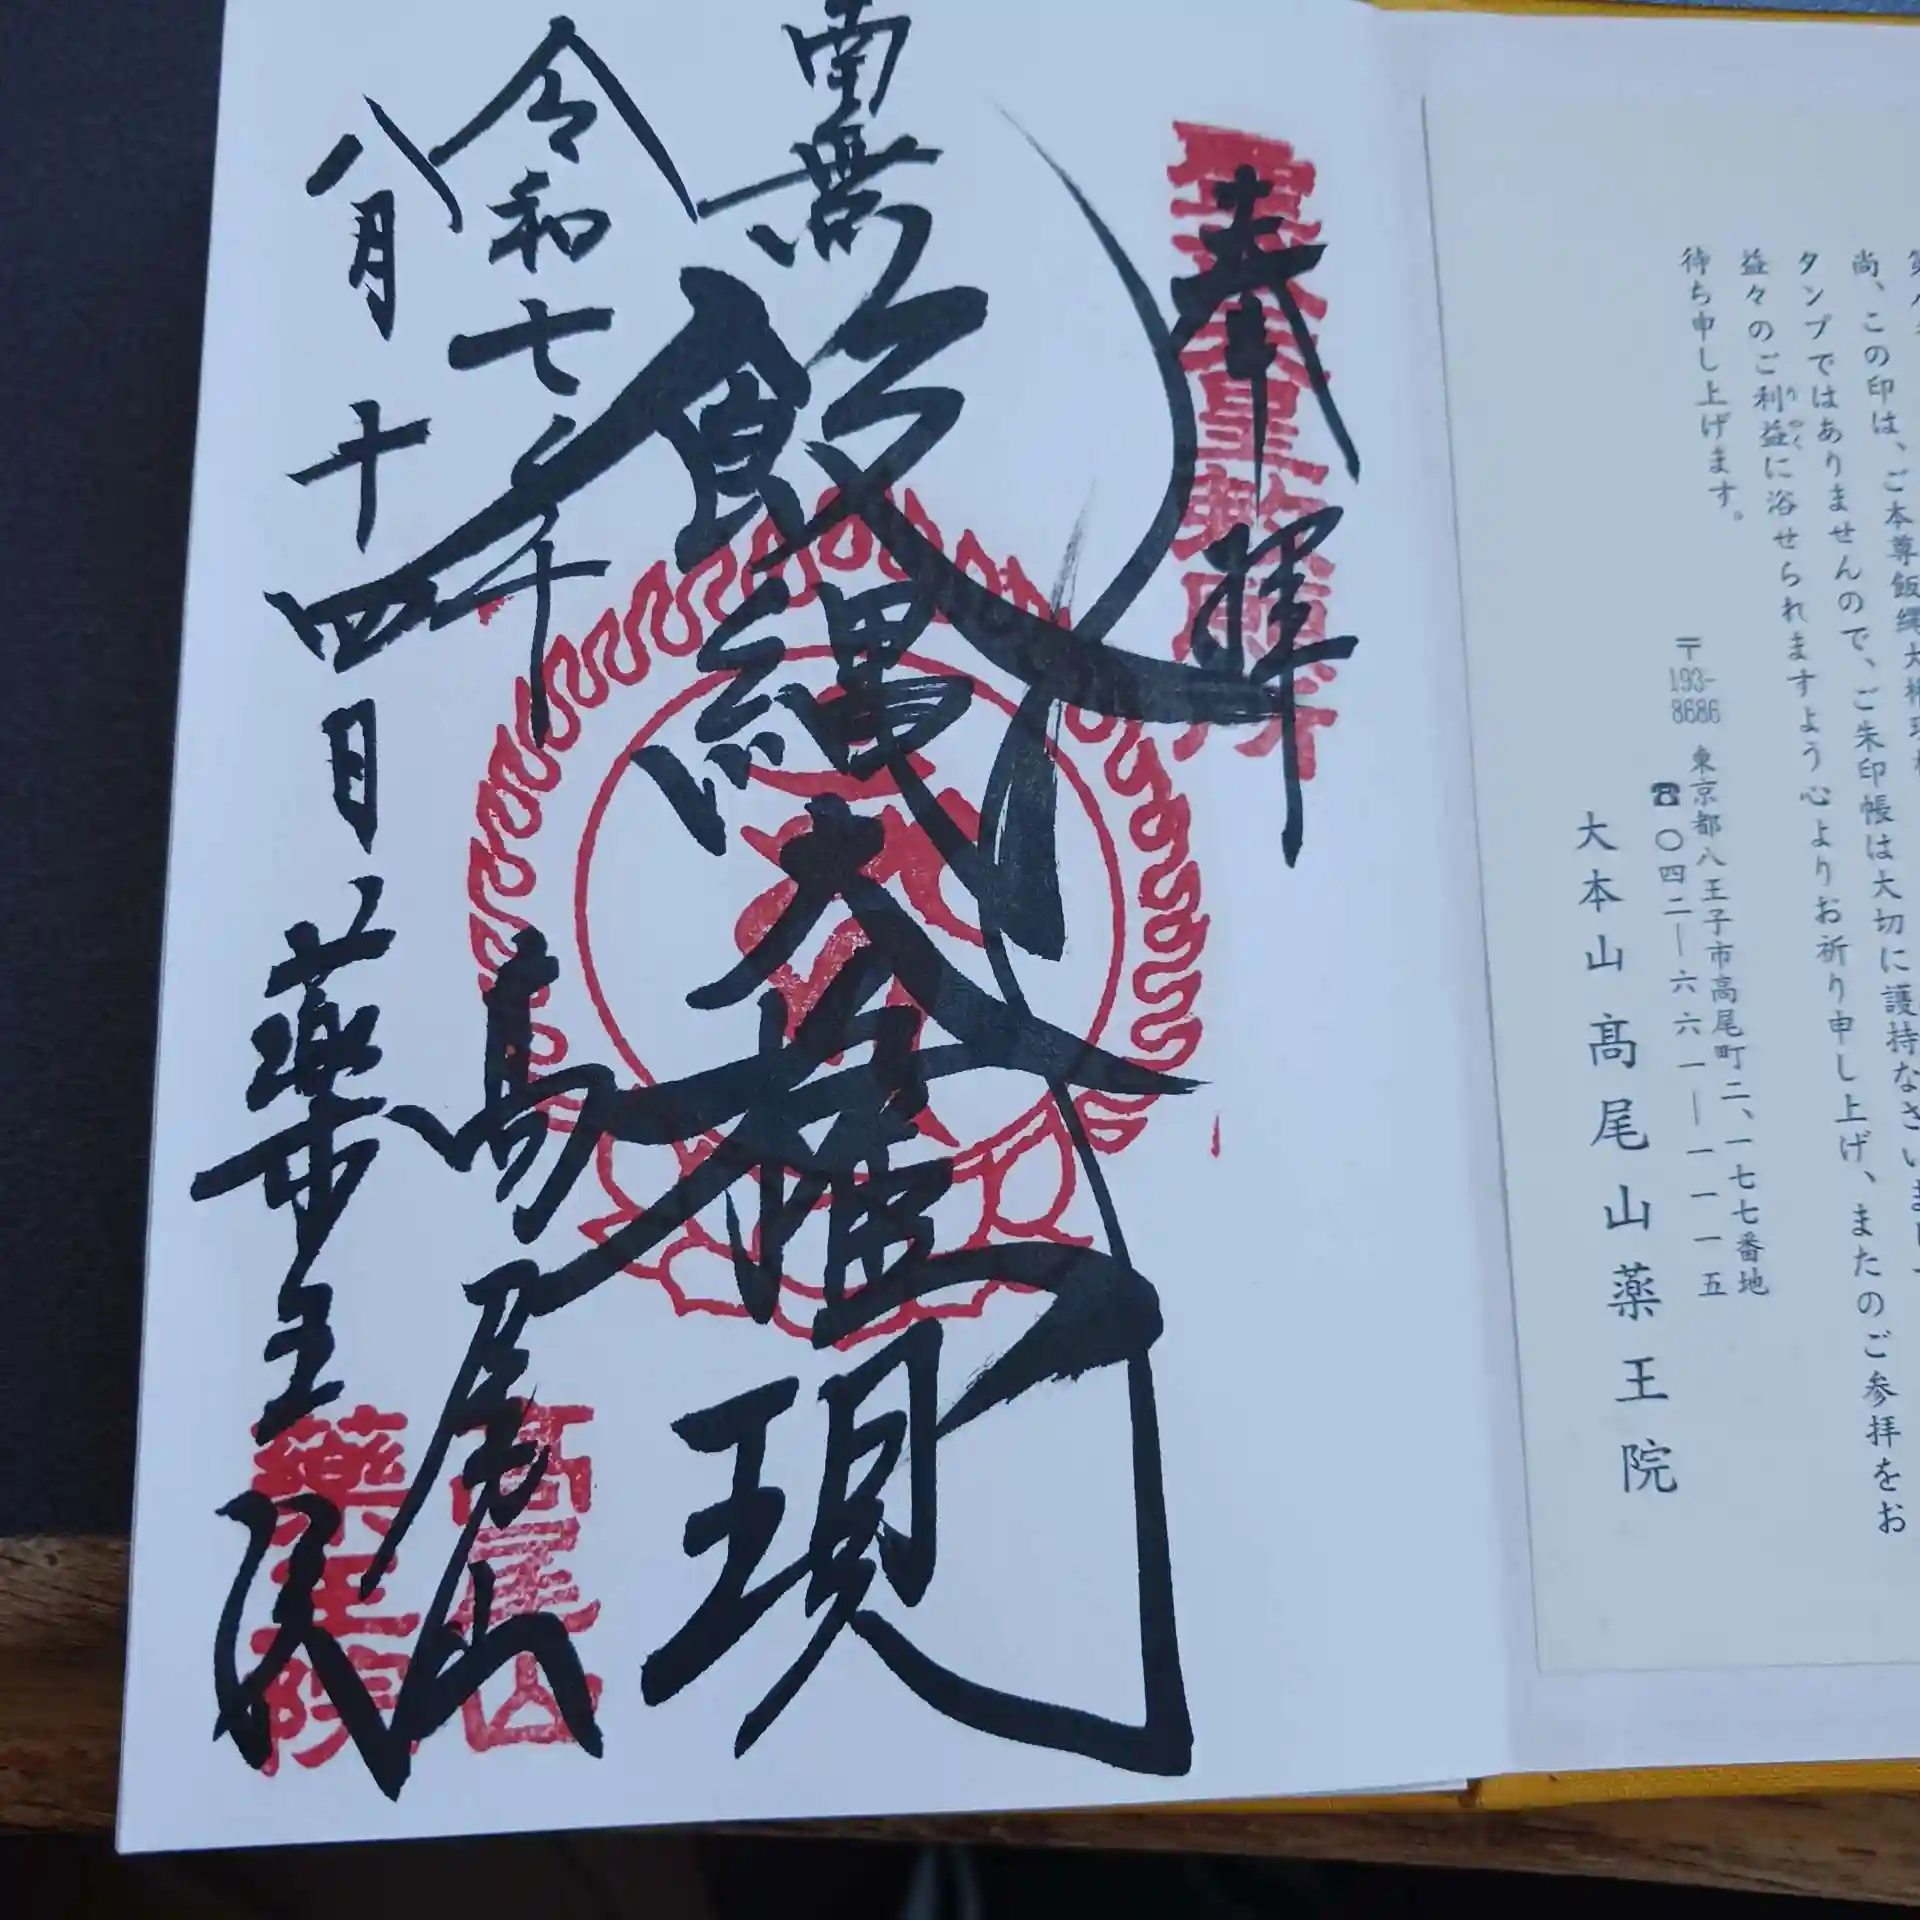 尚、この印は、ご本尊飯縄大権現
タンプではありませんので、ご朱印帳は大切に護持なさいまして
益々のご利益に浴せられますよう心よりお祈り申し上げ、またのご参拝をお
りやく
待ち申し上げます。
〒193-8686 東京都八王子市高尾町二、一七七番地
☎〇四二―六六一―一一一五
大本山髙尾山薬王院
奉拝
聖武天皇勅願所
南無
飯縄大権現
令和七年
八月十四日
高尾山
薬王院
高尾山
藥王院